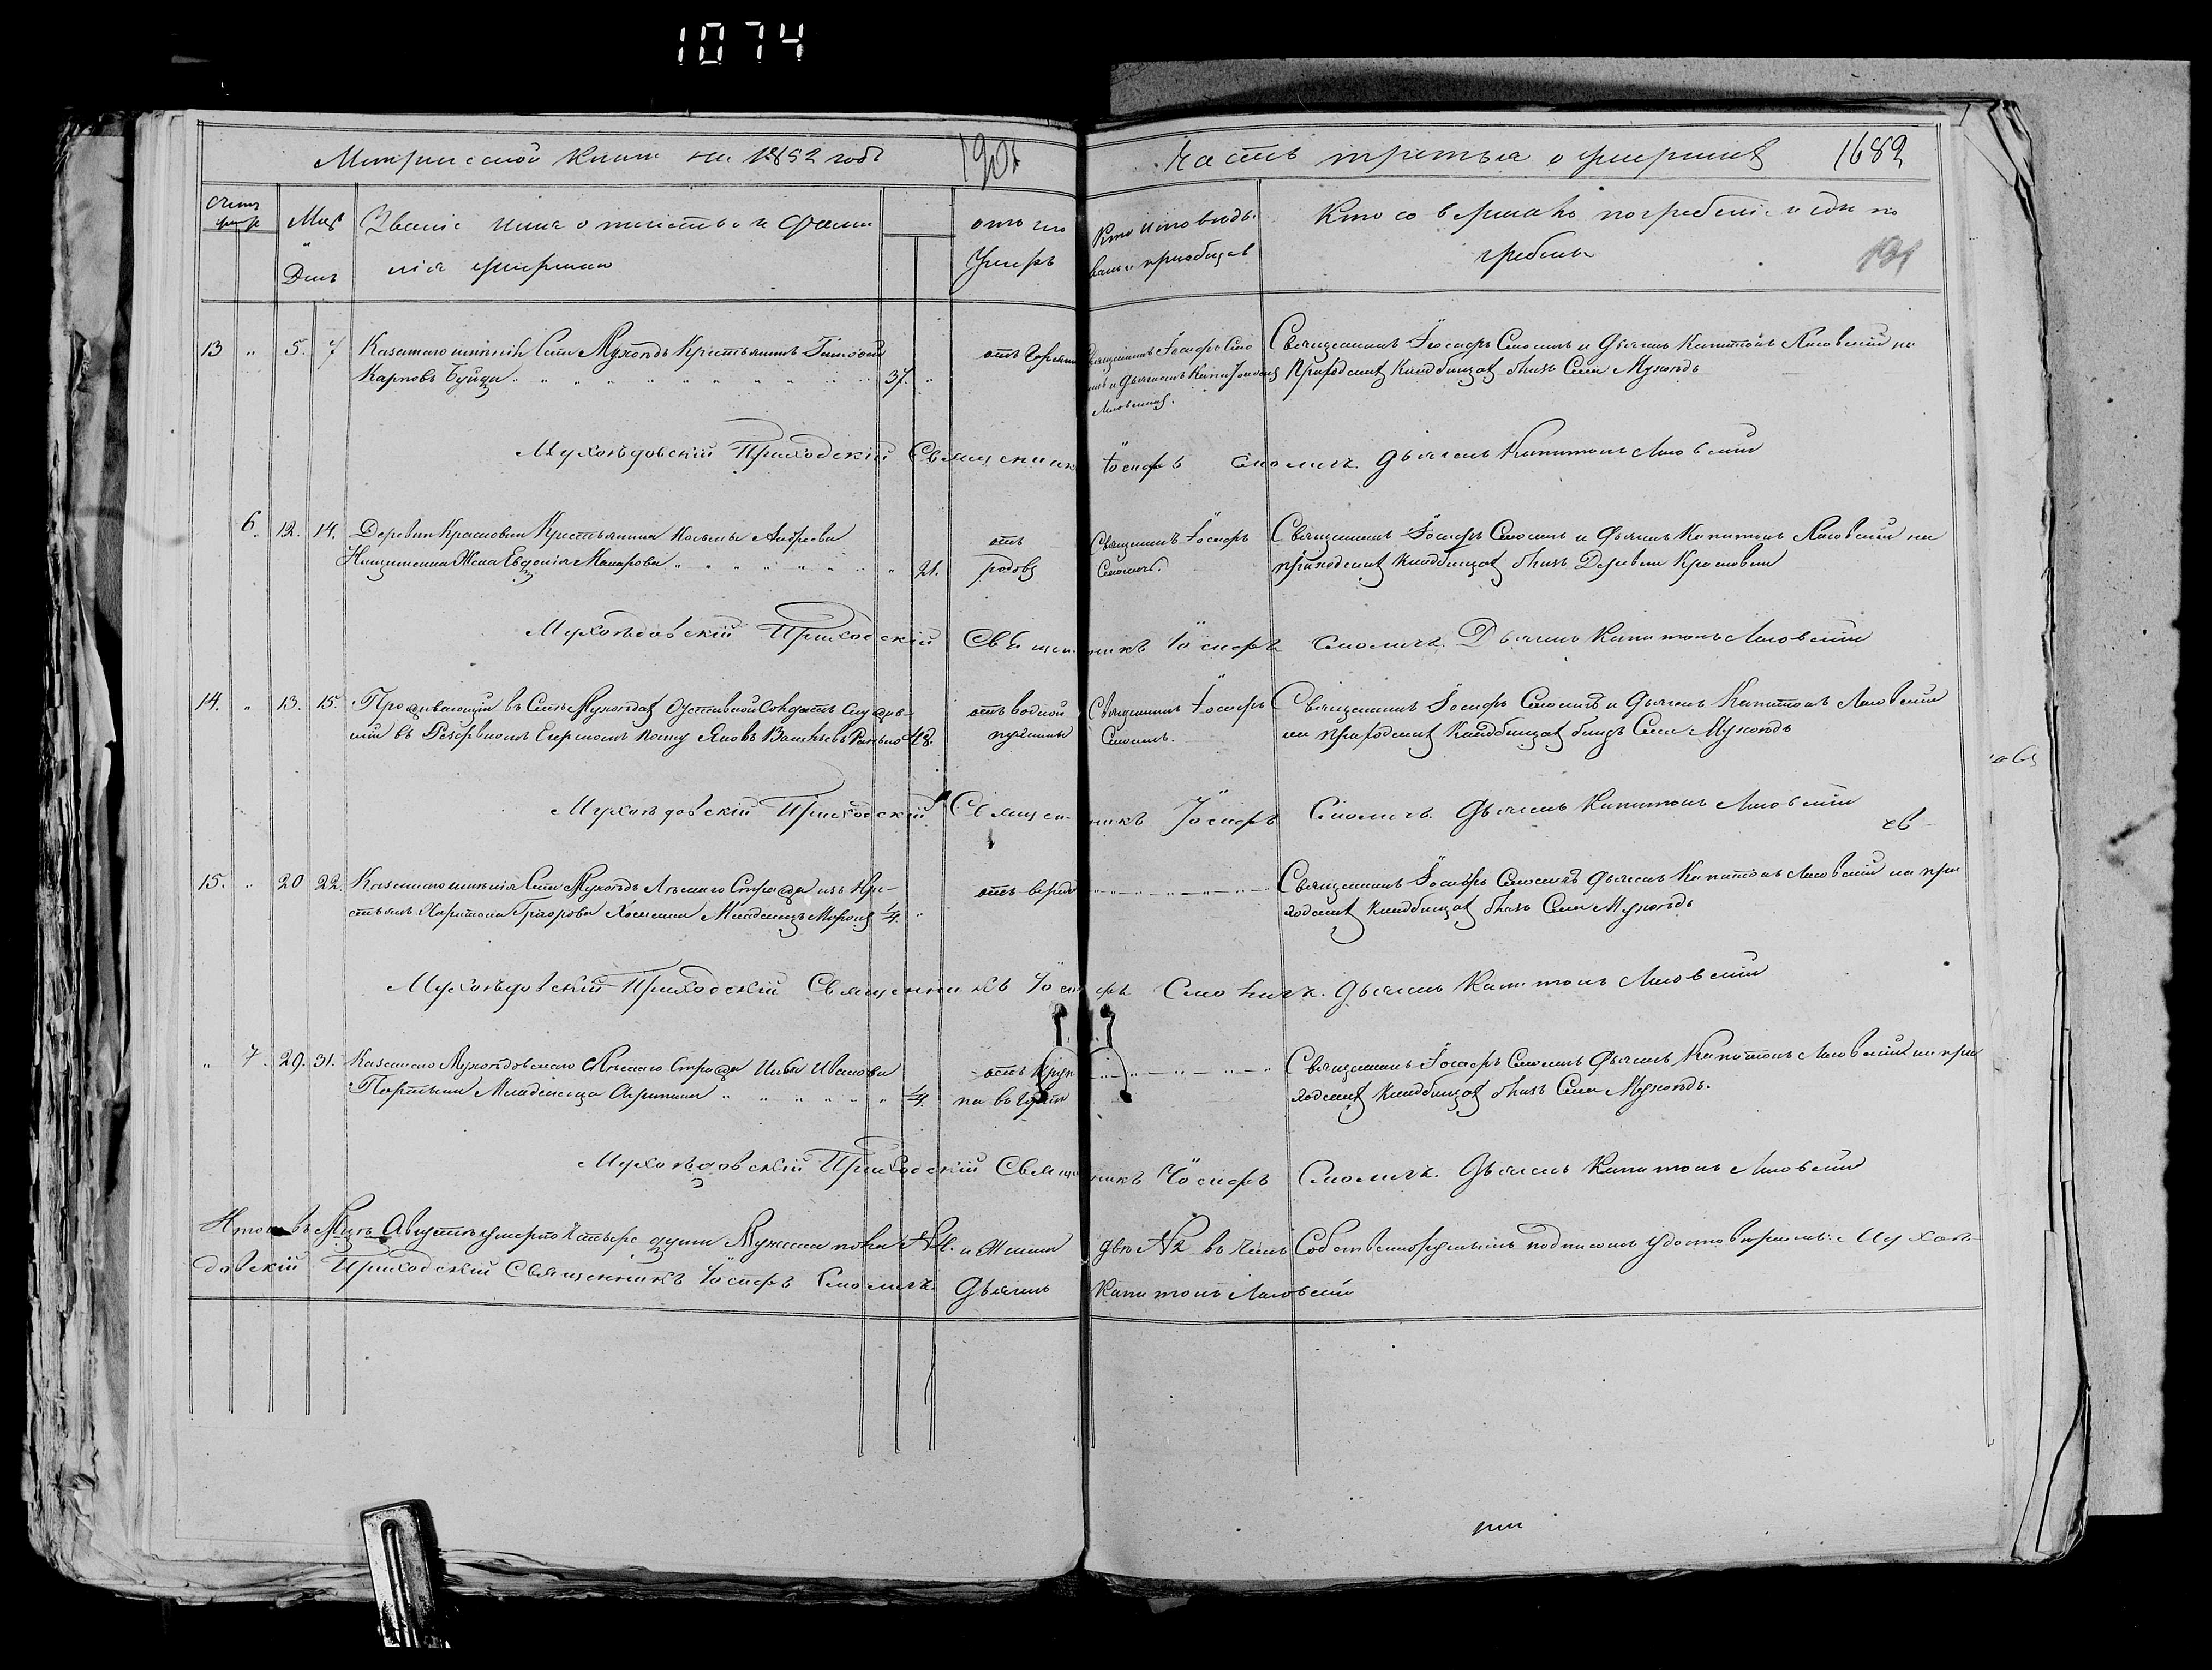 1074
Метрической книги на 1852 годъ
Часть третья о умершихъ 1682
Счетъ умер
Мѣс и День
Званіе имя отчество и фами
лія умершихъ
отъ чего
Умеръ
Кто исповѣды
валъ и пріобщалъ
Кто совершалъ погребеніе и гдѣ по
гребены
13 " 5. 7 Казеннаго имѣнія Села Мухоѣдъ Крестьянинъ Тимофей
Карповъ Буйда 37. "
отъ горячки
Священникъ Іосифъ Смо
личъ и Дьячокъ Капитонъ
Лисовскій.
Священникъ Іосифъ Смоличъ и Дьячокъ Капитонъ Лисовскій на
Приходскомъ кладбищѣ близъ Села Мухоѣдъ
Мухоѣдовскій Приходскій Священникъ Іосифъ Смоличъ. Дьячокъ Капитонъ Лисовскій
6. 12. 14. Деревни Красновки Крестьянина Космы Андреева
жена Евдокія Макарова " 21.
отъ
родовъ
Священникъ Іосифъ
Смоличъ.
Священникъ Іосифъ Смоличъ и Дьячокъ Капитонъ Лисовскій на
приходскомъ кладбищѣ близъ Деревни Красновки
Мухоѣдовскій Приходскій Священникъ Іосифъ Смоличъ. Дьячокъ Капитонъ Лисовскій
14. " 13. 15. Проживающій въ Селѣ Мухоѣдахъ Отставной Солдатъ служив-
шій въ Резервномъ Егерскомъ полку Яковъ Васильевъ 48.
отъ водной
пухлины
Священникъ Іосифъ
Смоличъ.
Священникъ Іосифъ Смоличъ и Дьячокъ Капитонъ Лисовскій
на приходскомъ кладбищѣ близъ Села Мухоѣдъ
Мухоѣдовскій Приходскій Священникъ Іосифъ Смоличъ. Дьячокъ Капитонъ Лисовскій
15. " 20 22. Казеннаго имѣнія Села Мухоѣдъ Лѣснаго Стражи изъ Кре-
стьянъ Харитона Григорова Младенецъ Миронъ 1/4. "
Священникъ Іосифъ Смоличъ Дьячокъ Капитонъ Лисовскій на при
ходскомъ кладбищѣ близъ Села Мухоѣдъ
Мухоѣдовскій Приходскій Священникъ Іосифъ Смоличъ. Дьячокъ Капитонъ Лисовскій
" 7. 29. 31. Казеннаго Мухоѣдовскаго Лѣснаго Стражи Ивановa
Младенецъ Акрипина " 1/4.
Священникъ Іосифъ Смоличъ Дьячокъ Капитонъ Лисовскій на при
ходскомъ кладбищѣ близъ Села Мухоѣдъ.
Мухоѣдовскій Приходскій Священникъ Іосифъ Смоличъ. Дьячокъ Капитонъ Лисовскій
Итого въ Мѣсяцѣ Августѣ умерло Мужеска пола и Женска двѣ №2 въ чемъ Собственноручнымъ подписомъ удостовѣряемъ: Мухоѣ-
довскій Приходскій Священникъ Іосифъ Смоличъ. Дьячокъ Капитонъ Лисовскій